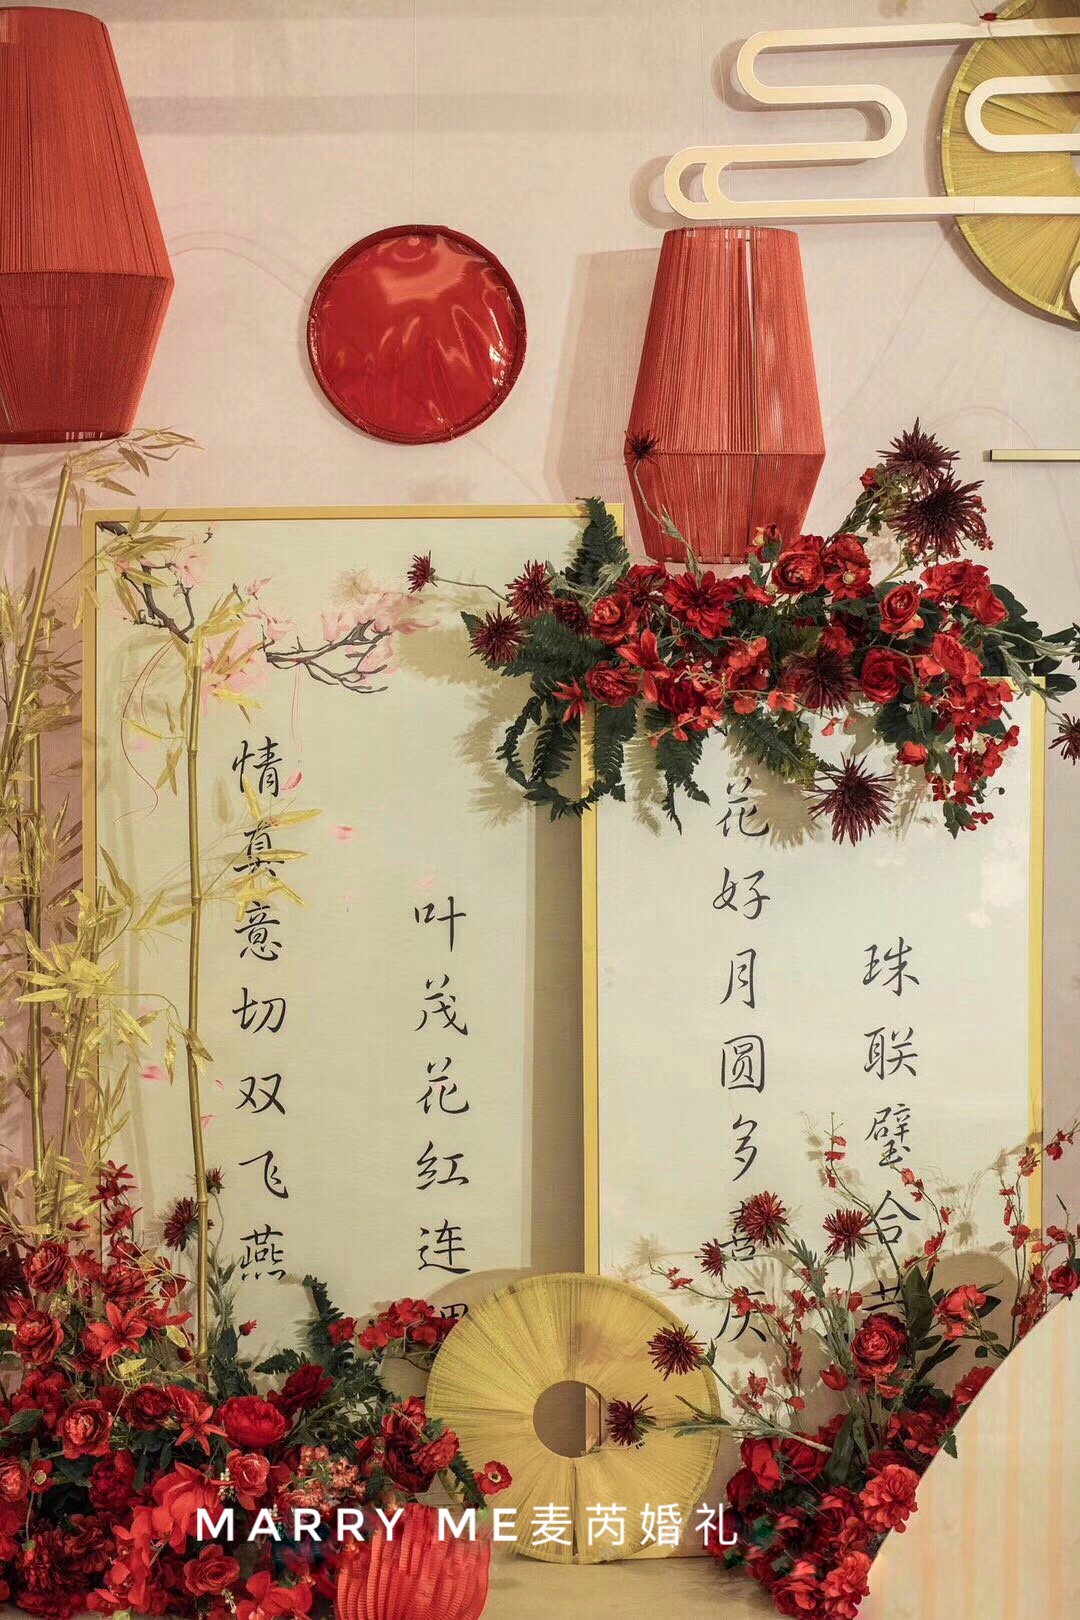 情真意切双飞燕
叶茂花红连
花好月圆多喜庆
珠联璧合
MARRY ME麦芮婚礼